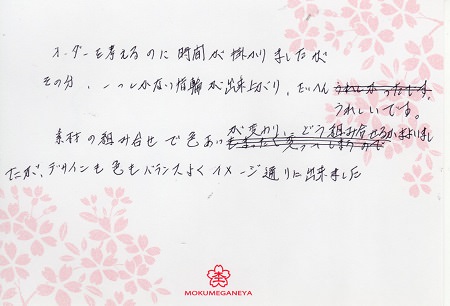 オーダーを考えるのに時間が掛かりましたが
その分、一つしかない指輪が出来上がり、たいへん うれしかったです。
うれしいです。
素材の組み合せで色あいが変わり、どう組み合せるかまよいまし
たが、デザインも色もバランスよくイメージ通りに出来ました
MOKUMEGANEYA